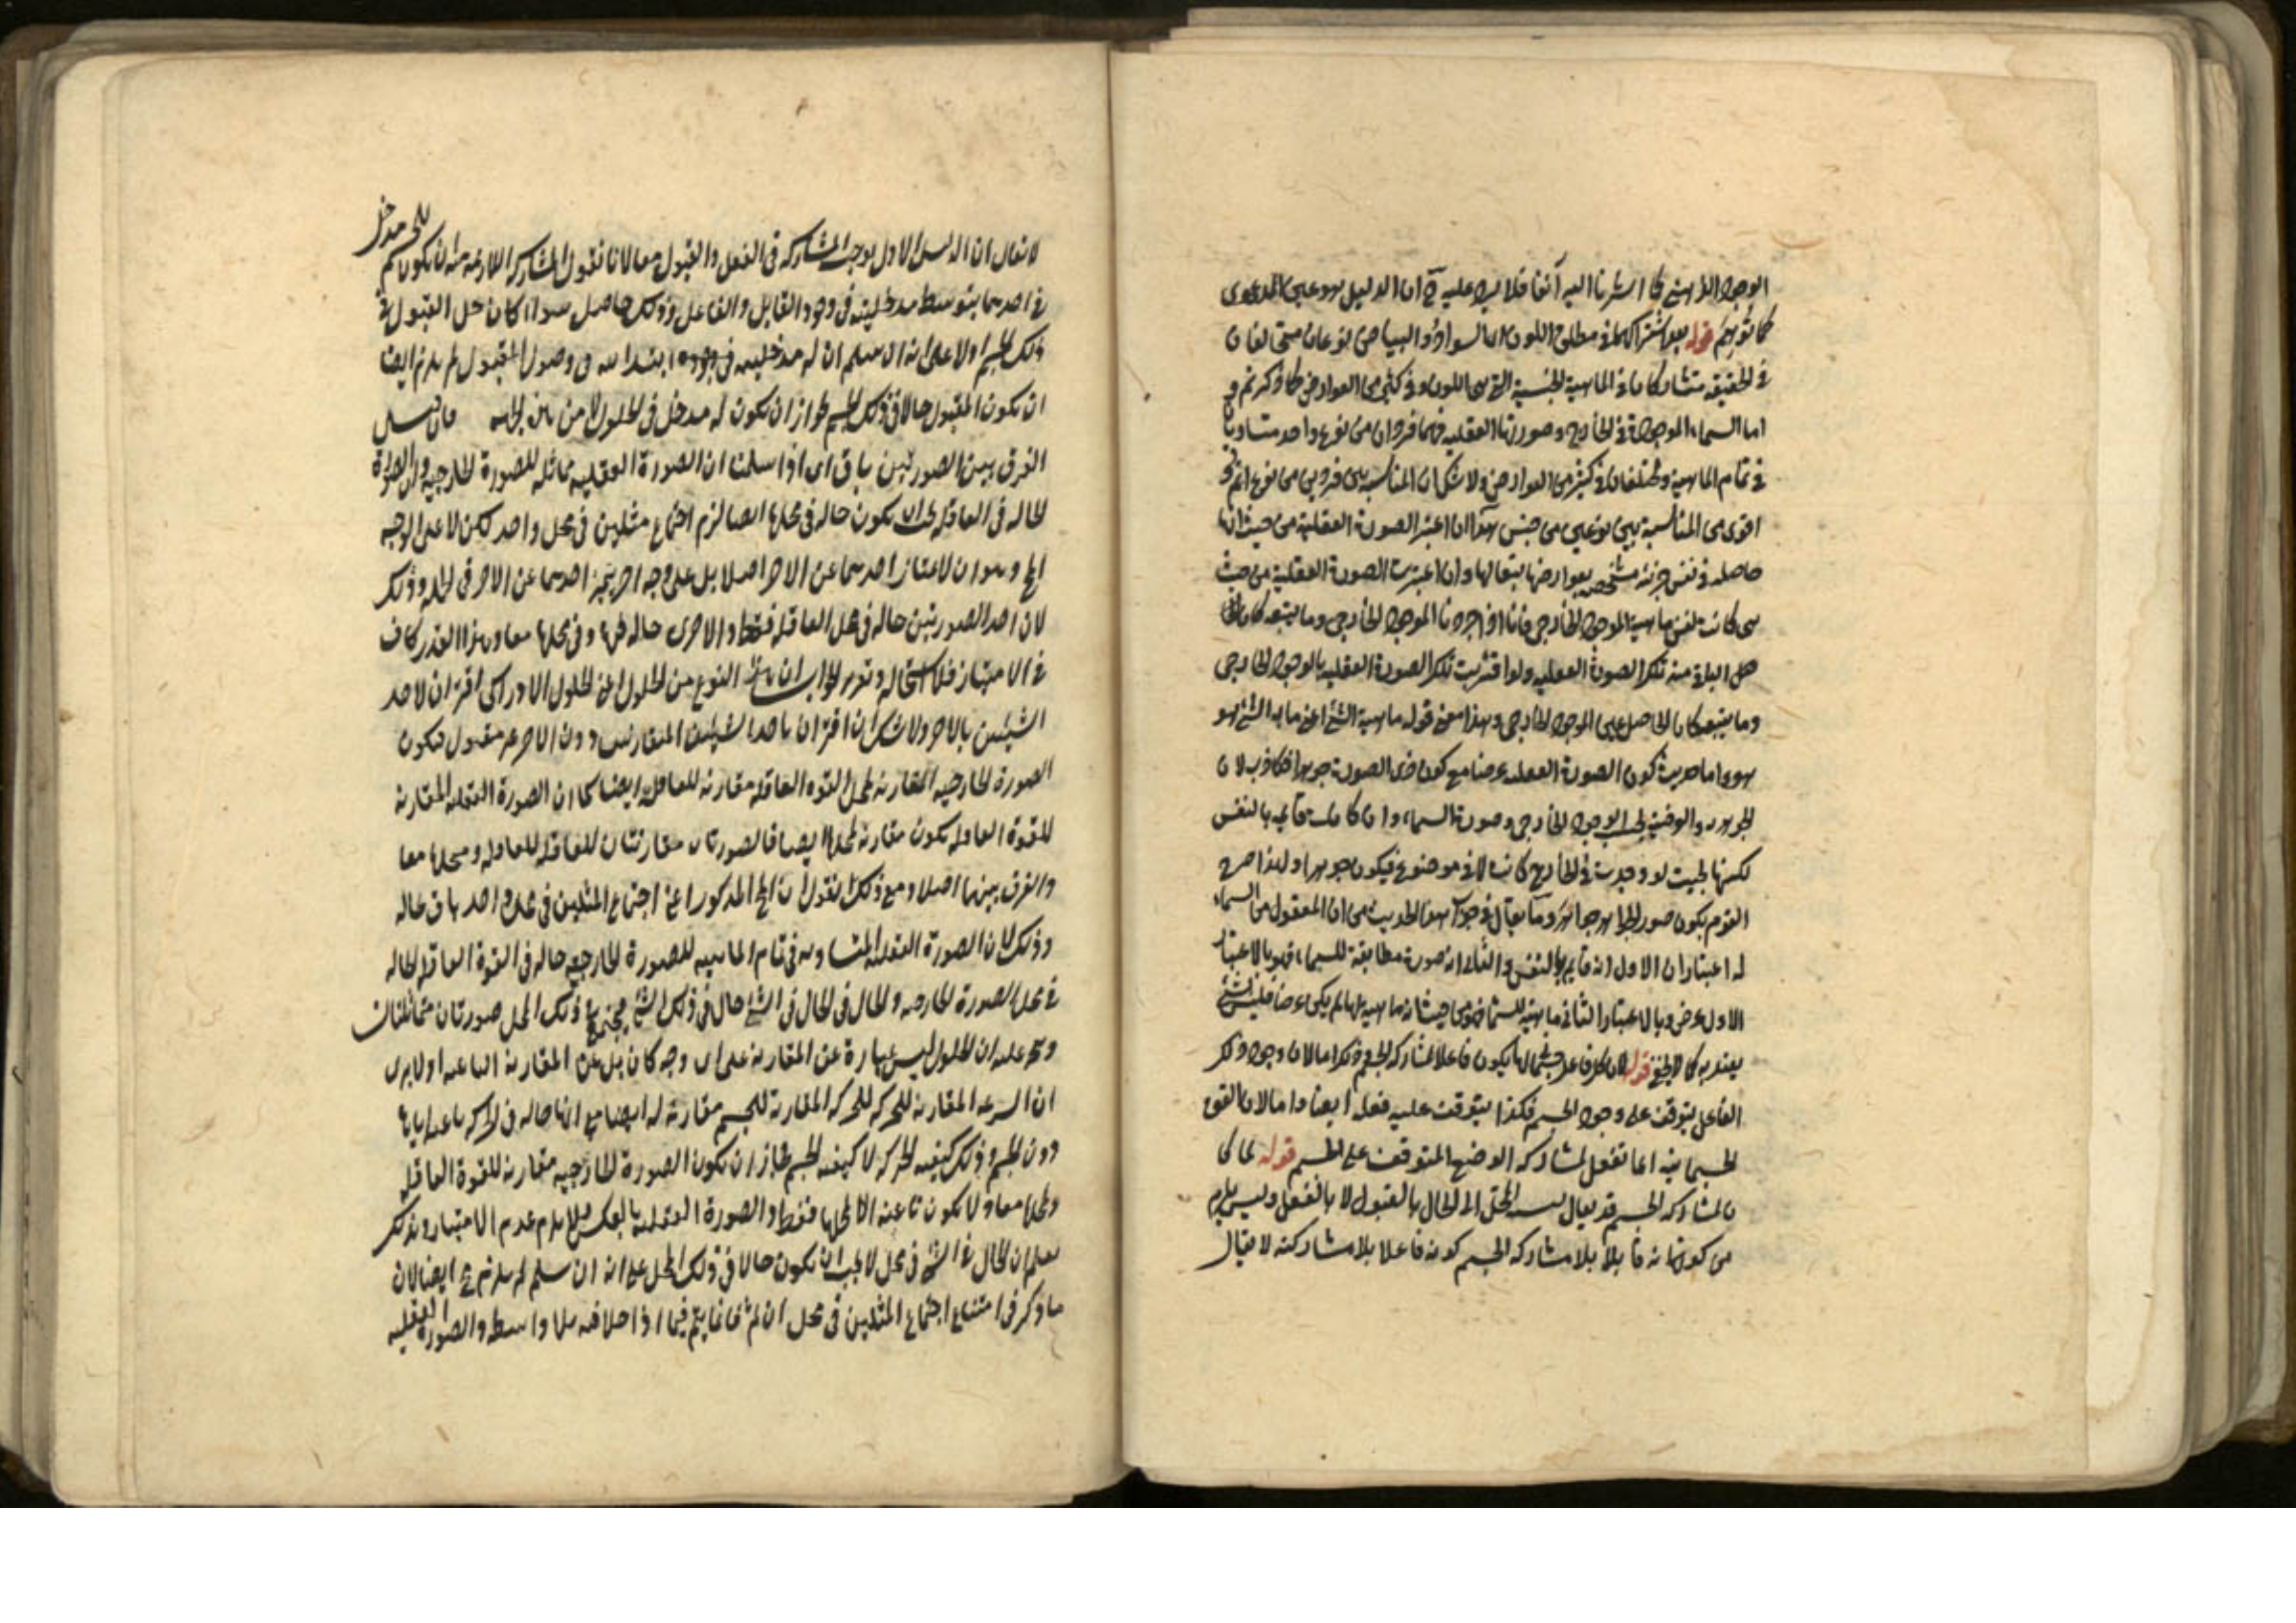 الوجود الذهنى كما اشرنا اليه آنفا فلا يرد عليه ان الدليل هو عين المدعوى
كما توهم قوله بعد اشتراكهما فى مطلق اللون اى السواد والبياض نوعان متخالفان
فى الحقيقة متشاركان فى الماهية الجنسية التى هى اللون وفى كثير من العوارض كما ذكرتم و
اما السماء الموجودة فى الخارج وصورتها العقلية فهما فردان من نوع واحد متساويان
فى تمام الماهية ومختلفان فى كثير من العوارض ولا شك ان المناسبة بين فردين من نوع اتم و
اقوى من المناسبة بين نوعين من جنس هذا ان اعتبر الصورة العقلية من حيث انها
حاصلة فى نفس جزئية مشخصة بعوارضها بتبعا لها وان اعتبرت الصورة العقلية من حيث
هى كانت نفس ماهية الموجود الخارجى فانا اذا جردنا الموجود الخارجى وما يتبعه كان
الباقى منه تلك الصورة العقلية ولو اقترنت تلك الصورة العقلية بالوجود الخارجى
وما يتبعه كان الحاصل عين الموجود الخارجى وهذا معنى قوله ماهية الشئ اعنى ما به الشئ هو
هو واما حديث كون الصورة العقلية عرضا مع كون ذى الصورة جوهرا فكاذب لان
الجوهرية والعرضية بحسب الوجود الخارجى وصورة السماء وان كانت قائمة بالنفس
لكنها بحيث لو وجدت فى الخارج كانت لا فى موضوع فيكون جوهرا ولهذا صرح
القوم بكون صور الجواهر جواهر وما يقال فى جواب هذا الحديث من ان المعقول من السماء
له اعتباران الاول انه قائم بالنفس والثانى انه صورة مطابقة للسماء فهو بالاعتبار
الاول عرض وبالاعتبار الثانى ماهية للسماء فهو من حيث انه ماهية لها لم يكن عرضا فليس بشئ
يعتد به كما لا يخفى قوله لان كل فاعل جسمانى يكون فاعلا بمشاركة الجسم وذلك اما لان وجود ذلك
الفاعل يتوقف على وجود الجسم فكذا يتوقف عليه فعله ايضا واما لان القوى
الجسمانية انما تفعل بمشاركة الوضع المتوقف على الجسم قوله
بمشاركة الجسم قد يقال نسبة المحل الى الحال بالقبول لا بالفعل وليس يلزم
من كونها قابلا بلا مشاركة الجسم كونه فاعلا بلا مشاركته لا يقال
لا يقال ان الدليل الاول يوجب المشاركة فى الفعل والقبول معا لانا نقول المشاركة اللازمة منه ان يكون للجسم مدخل
فى احدهما بتوسط مدخليته فى وجود القابل والفاعل وذلك حاصل سواء كان حل القبول فى
ذلك الجسم اولا على انه ان سلم ان له مدخلية فى وجوده ابتداء فى وصول المقبول لم يلزم ايضا
ان يكون المقبول حالا فى ذلك الجسم لجواز ان يكون له مدخل فى الحلول لا من هذه الجهة فان قيل
الفرق بين الصورتين باق اى اذا سلمنا ان الصورة العقلية مماثلة للصورة الخارجية وان الصورة
الحالة فى العاقلة يجب ان يكون حالة فى محلها ايضا لزم اجتماع مثلين فى محل واحد لكن لا على الوجه
المح وهو ان لا يمتاز احدهما عن الاخر اصلا بل على وجه اخر يتميز احدهما عن الاخر فى الجملة وذلك
لان احد الصورتين حالة فى محل العاقلة فقط والاخرى حالة فيها وفى محلها معا وهذا القدر كاف
فى الامتياز فلا استحالة وتقرير الجواب ان هذا النوع من الحلول اعنى الحلول الادراكى اقتران لاحد
الشيئين بالاخر ولا شك ان اقتران باحد الشيئين المتقارنين دون الاخر غير معقول فيكون
الصورة الخارجية المقارنة لمحل القوة العاقلة مقارنة للعاقلة ايضا كما ان الصورة العقلية المقارنة
للقوة العاقلة يكون مقارنة لمحلها ايضا فالصورتان مقارنتان للعاقلة ومحلها معا
والفرق بينهما اصلا ومع ذلك نقول ان المح المذكور اعنى اجتماع المثلين فى محل واحد باق بحاله
وذلك لان الصورة العقلية المتساوية فى تمام الماهية للصورة الخارجية حالة فى القوة العاقلة الحالة
فى محل الصورة الخارجية والحال فى الحال فى الشئ حال فى ذلك الشئ فيجتمع فى ذلك المحل صورتان متماثلتان
ويتجه عليه ان الحلول ليس عبارة عن المقارنة على اى وجه كان بل عن المقارنة الناعتة اولا يرى
ان السرعة المقارنة للحركة المقارنة للجسم مقارنة له ايضا مع انها حالة فى الحركة ناعتة اياها
دون الجسم وذلك كيفية الحركة لا كيفية الجسم فجاز ان يكون الصورة الخارجية مقارنة للقوة العاقلة
ومحلها معا ولا يكون ناعتة الا لمحلها فقط والصورة العقلية بالعكس فلا يلزم عدم الامتياز وبذلك
يعلم ان الحال فى الشئ فى محل لا يجب ان يكون حالا فى ذلك المحل على انه ان سلم لم يلزم مح ايضا لان
ما ذكر فى امتناع اجتماع المثلين فى محل ان تم فانما يتم فيما اذا حلا فيه بلا واسطة والصورة العقلية